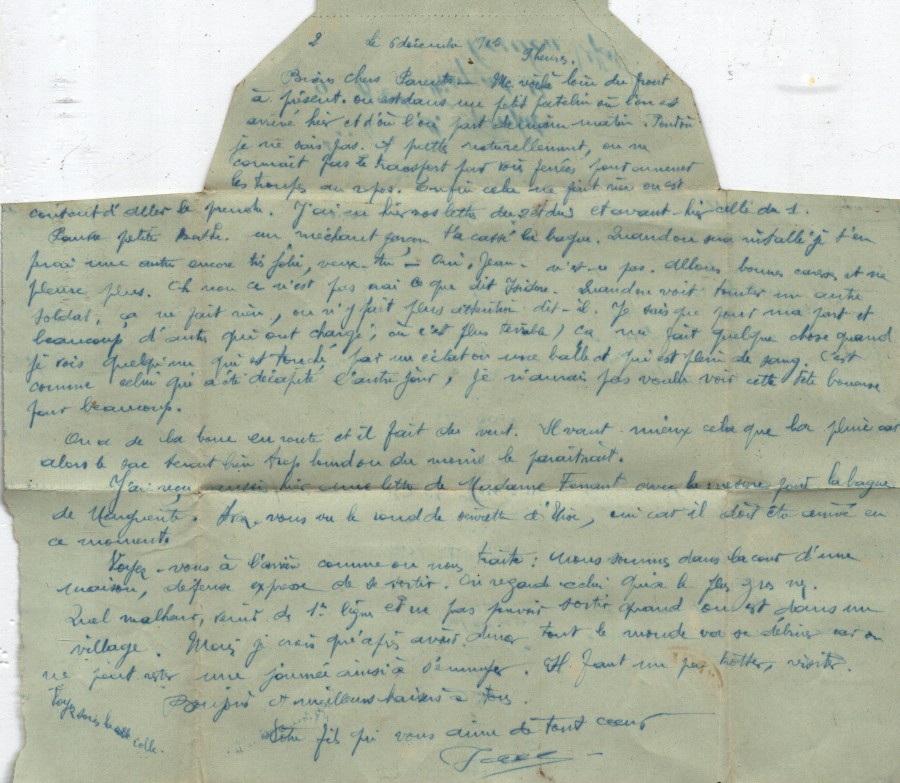 2 le 6 décembre 1915
Bien chers Parents - Me voilà loin du front
à présent. on est dans un petit patelin où l'on est
arrivé hier et d'où l'on part demain matin. Pour où
je ne sais pas. A pattes naturellement, on ne
connait pas le transport par voies ferrées pour amener
les troupes au repos. Enfin cela ne fait rien on est
content d'aller le prendre. J'ai eu hier vos lettres du 2 et du 3 et avant-hier celle du 1.
Pauvre petite Marthe. un méchant garçon t'a cassé ta bague. Quand on sera installé je t'en
ferai une autre encore très jolie, veux-tu - Oui, Jean - n'est-ce pas. Allons bonnes caresses et ne
pleure plus. Eh non ce n'est pas vrai ce que dit Isidore. Quand on voit tomber un autre
soldat, ça ne fait rien, on n'y fait plus attention dit-il. Je sais que pour ma part et
beaucoup d'autres qui ont chargé, où c'est plus terrible, ça me fait quelque chose quand
je vois quelqu'un qui est touché par un éclat ou une balle et qui est plein de sang. C'est
comme celui qui a été décapité l'autre jour, je n'aurais pas voulu voir cette tête
pour beaucoup.
On a de la boue en route et il fait du vent. Il vaut mieux cela que la pluie car
alors le sac serait bien trop lourd ou du moins le paraîtrait.
J'ai reçu aussi hier une lettre de Madame avec la mesure pour la bague
de Marguerite. Avez-vous vu le rond de serviette d'Elise, oui car il doit être arrivé en
ce moment.
Voyez-vous à l'arrière comme on nous traite: nous sommes dans la cour d'une
maison, défense expresse de sortir. On regarde celui qui a le plus gros nez.
Quel malheur, venir de 1re ligne et ne pas pouvoir sortir quand on est dans un
village. Mais je crois qu'après avoir dîner tout le monde va se débiner car on
ne peut rester une journée ainsi à s'ennuyer. Il faut un peu trotter, visiter.
Bonjour et meilleurs baisers à tous.
Voyez sous le côté collé.
Votre fils qui vous aime de tout coeur
Jean